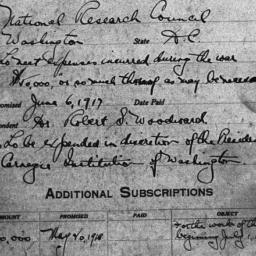 National Research Council
Washington State D.C.
To meet expenses incurred during the war
0,000, or so much thereof as may be necessa
omised June 6, 1917 Date Paid
ondent Dr. Robert S. Woodward
To be expended in discretion of the Preside
Carnegie Institution of Washington
ADDITIONAL SUBSCRIPTIONS
MOUNT PROMISED PAID OBJECT
0,000 May 20, 1918 For the work of th
beginning July 1,